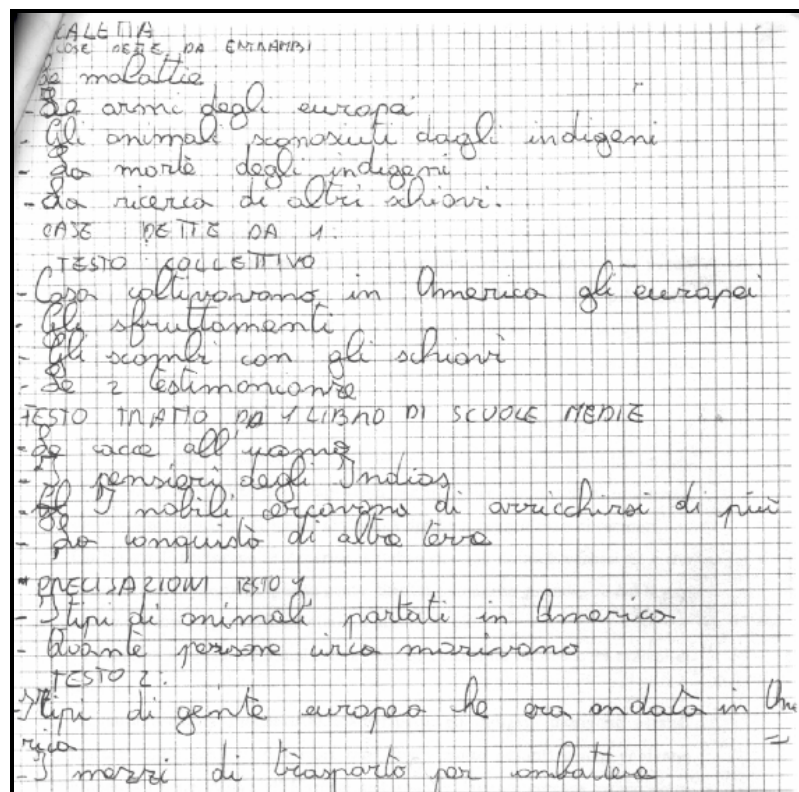 CALETTA
COSE DETTE DA ENTRAMBI
Le malattie
- Le armi degli europei
- Gli animali sconosciuti dagli indigeni
- La morte degli indigeni
- La ricerca di altri schiavi.
CASE DETTE DA 1.
TESTO COLLETTIVO
- Cosa coltivavano in America gli europei
- Gli sfruttamenti
- Gli scambi con gli schiavi
- Le 2 testimonianze
TESTO TRATTO DA 1 LIBRO DI SCUOLE MEDIE
- Le cacce all'uomo
- I pensieri degli Indios
- I nobili cercavano di arricchirsi di più
- La conquista di altre terre
* PRECISAZIONI TESTO 1
- I tipi di animali portati in America
- Quante persone circa morivano
TESTO 2.
- I tipi di gente europea he era andata in Ame
rica
- I mezzi di trasporto per combattere